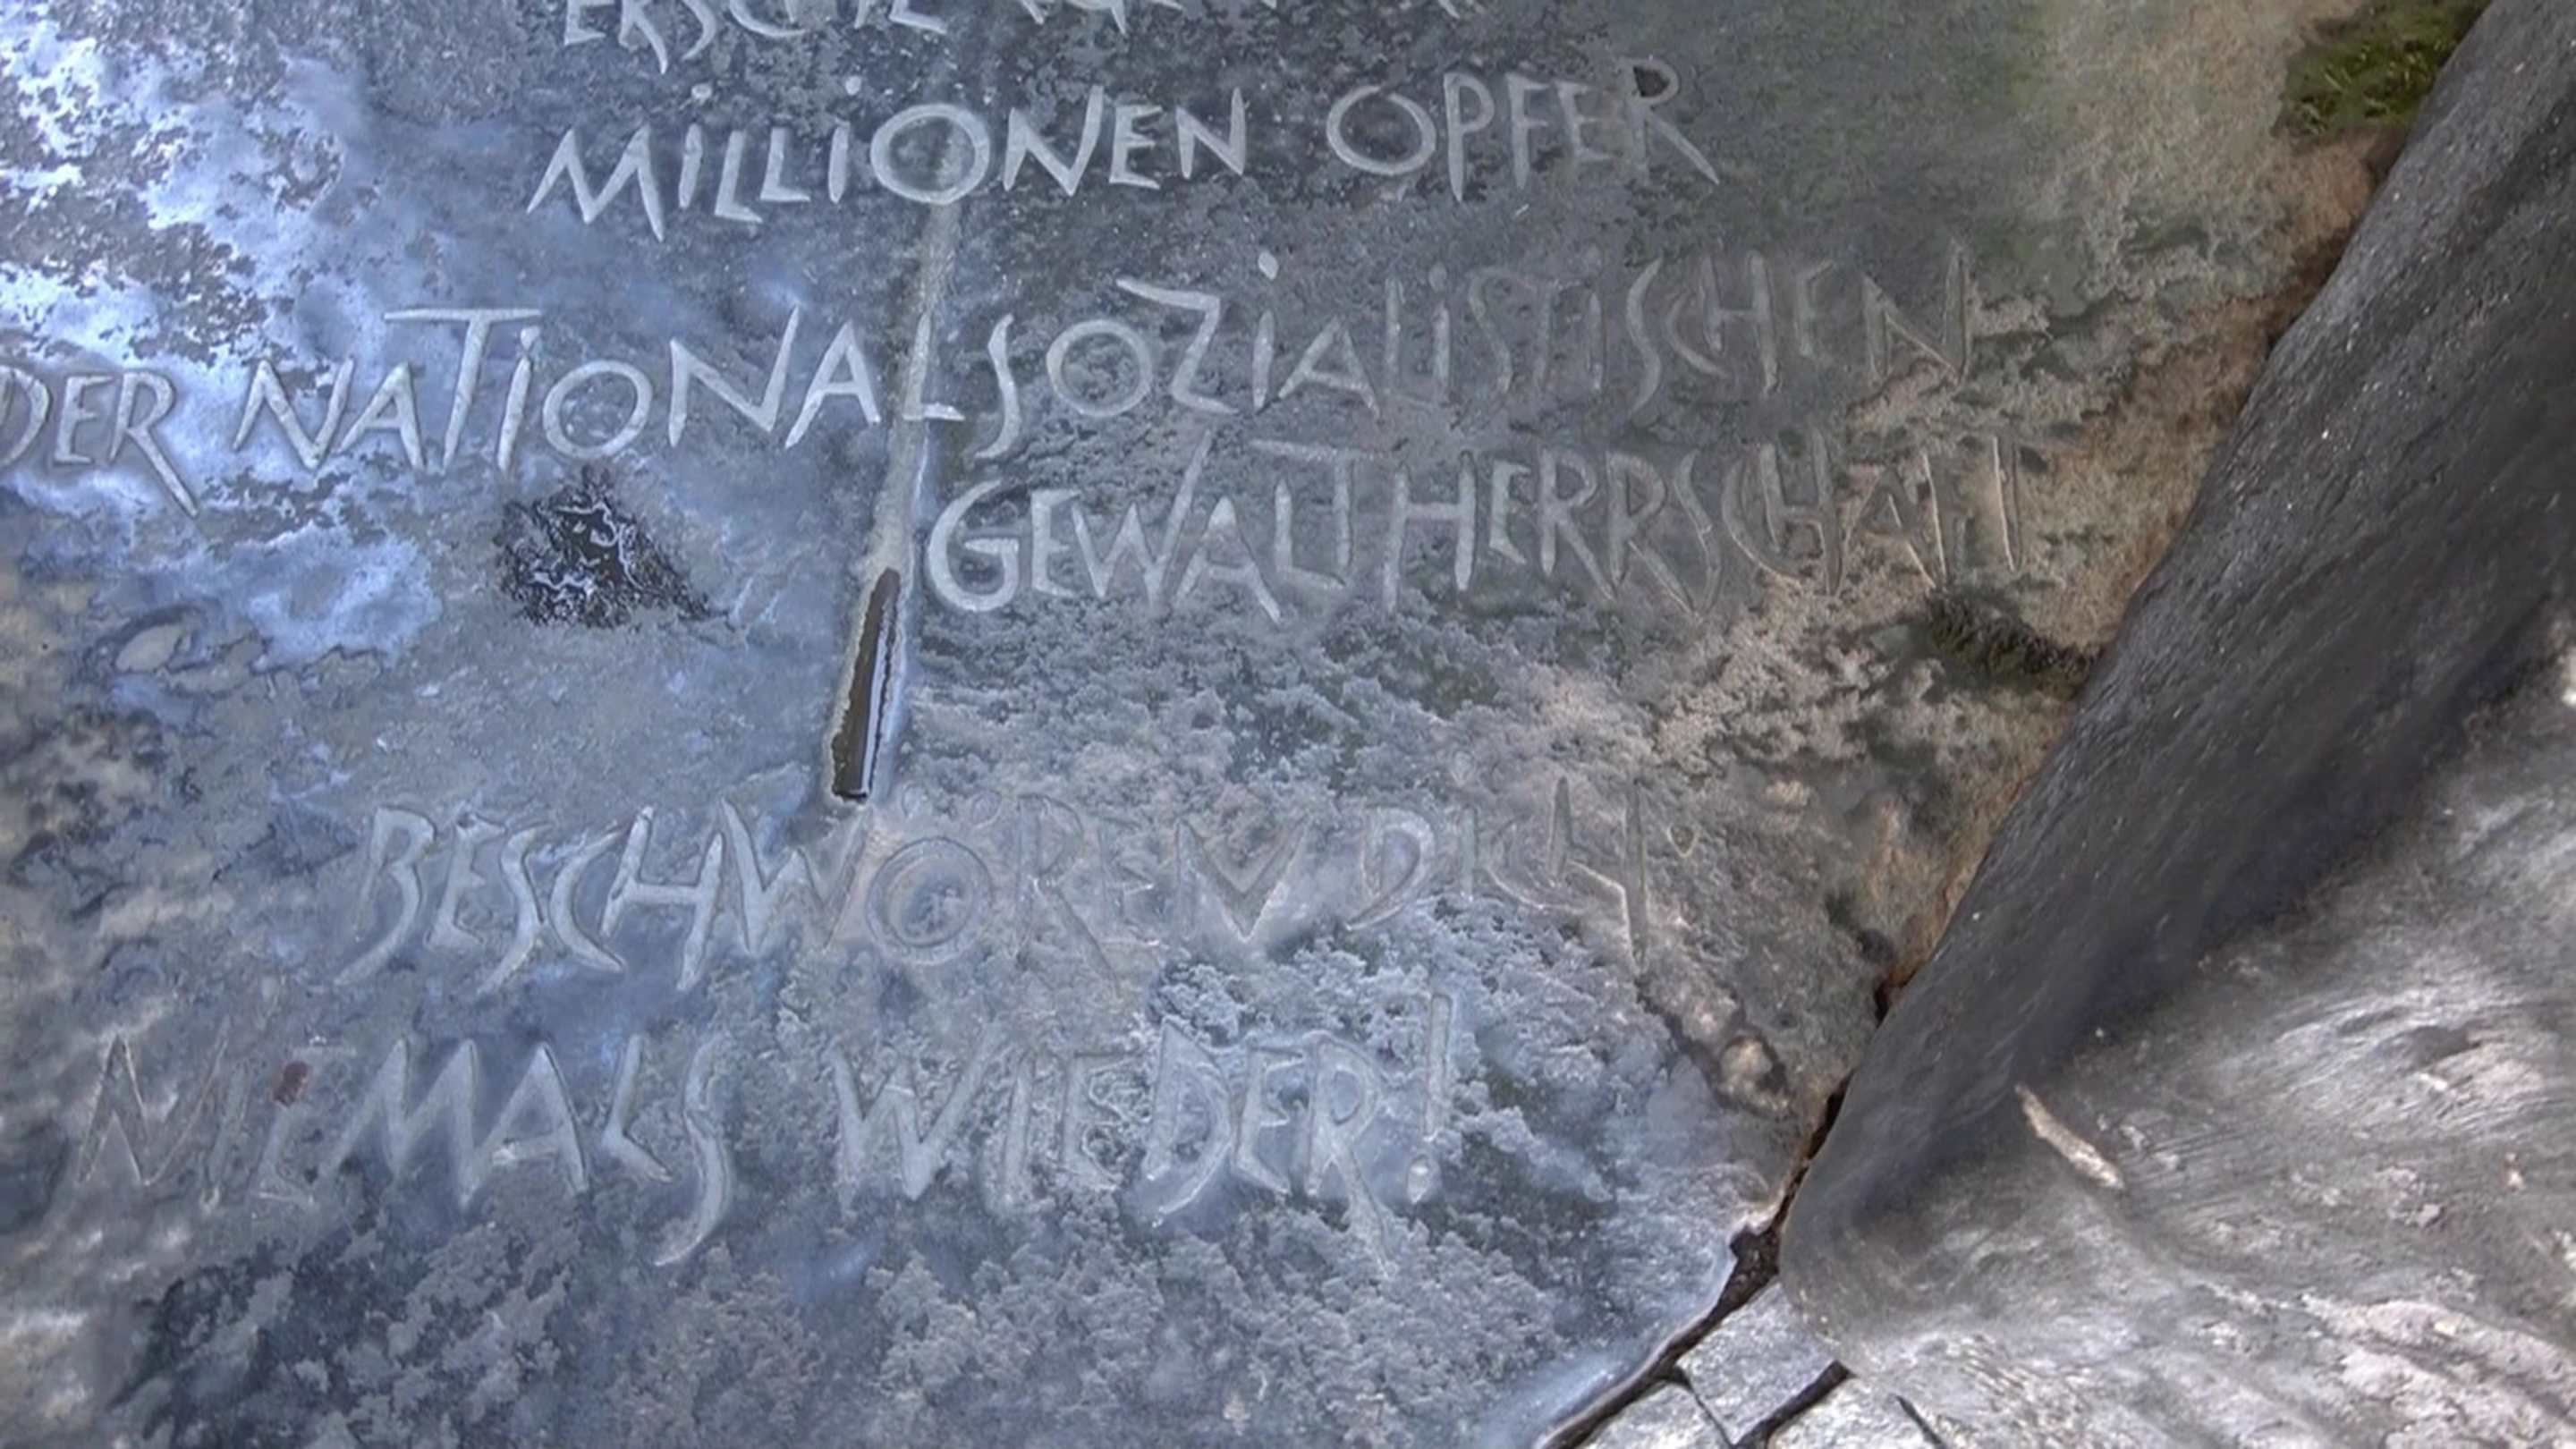 MILLIONEN OPFER
DER NATIONALSOZIALISTISCHEN
GEWALTHERRSCHAFT
BESCHWÖREN DICH:
NIEMALS WIEDER!